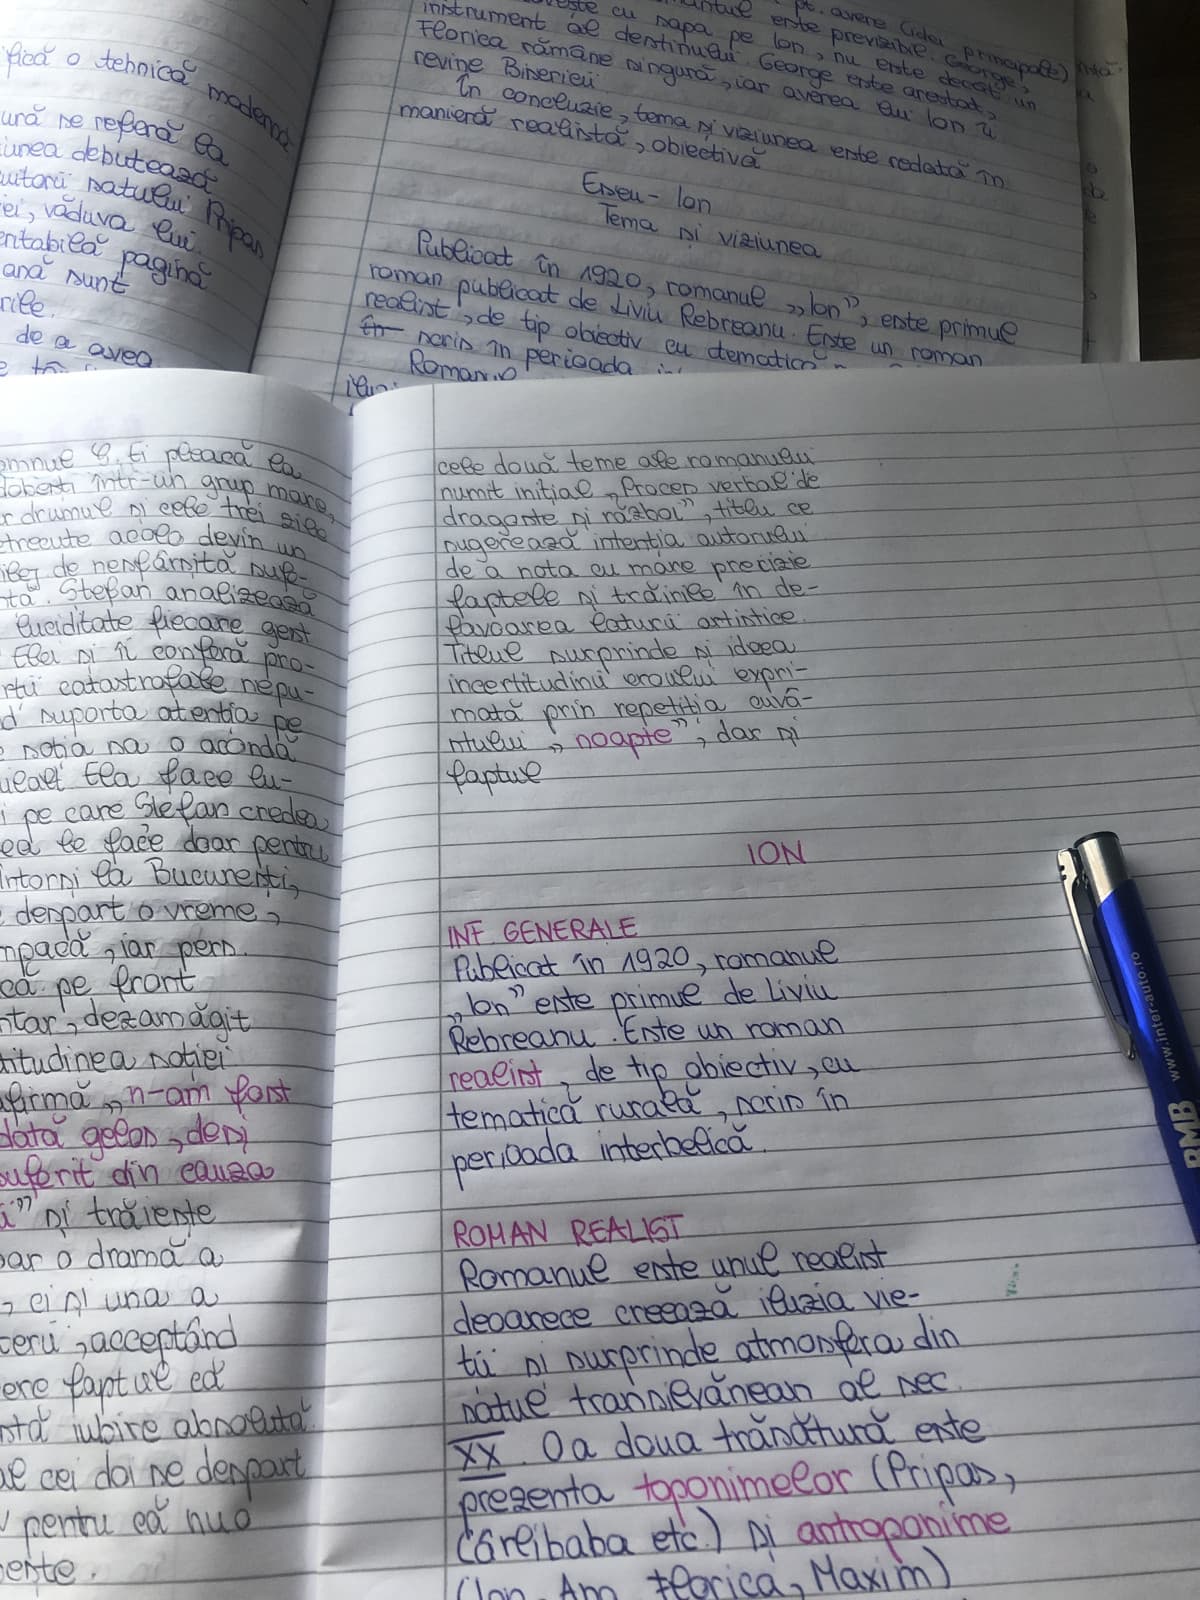 ifică o tehnică modernă
ură se referă la
iunea debutează
uitorii satului Pripas
iei, văduva lui
entabilă pagină
ană sunt
rile.
de a avea
pt. avere (idei principale)
este previzibil. George,
ovește cu sapa pe Ion, nu este decât un
instrument al destinului. George este arestat,
Florica rămâne singură, iar averea lui Ion îi
revine Bisericii.
În concluzie, tema și viziunea este redată în
manieră realistă, obiectivă
Eseu - Ion
Tema și viziunea
Publicat în 1920, romanul „Ion”, este primul
roman publicat de Liviu Rebreanu. Este un roman
realist, de tip obiectiv cu tematică
scris în perioada
Romanul
omnul G. Ei pleacă la
Odobești într-un grup mare,
r drumul și cele trei zile
etrecute acolo devin un
ilej de nesfârșită sufe-
tă. Ștefan analizează
luciditate fiecare gest
Elei și îi conferă pro-
rții catastrofale nepu-
d suporta atenția pe
e soția sa o acordă
Ela face lu-
i pe care Ștefan credea
ea le face doar pentru
Întorși la București,
despart o vreme,
mpacă, iar pers.
că pe front
ntar, dezamăgit
titudinea soției
afirmă „n-am fost
dată gelos, deși
suferit din cauza
i” și trăiește
oar o dramă a
, ci și una a
terii, acceptând
ere faptul că
stă iubire absolută.
al cei doi se despart
pentru că nu o
ește.
cele două teme ale romanului
numit inițial „Proces verbal de
dragoste și război”, titlu ce
sugerează intenția autorului
de a nota cu mare precizie
faptele și trăirile în de-
favoarea laturii artistice.
Titlul surprinde și ideea
incertitudinii eroului expri-
mată prin repetiția cuvâ-
ntului „noapte”, dar și
faptul
ION
INF. GENERALE
Publicat în 1920, romanul
„Ion” este primul de Liviu
Rebreanu. Este un roman
realist, de tip obiectiv, cu
tematică rurală, scris în
perioada interbelică.
ROMAN REALIST
Romanul este unul realist
deoarece creează iluzia vie-
ții și surprinde atmosfera din
satul transilvănean al sec.
XX. O a doua trăsătură este
prezența toponimelor (Pripas,
Cărelibaba etc.) și antroponime
(Ion, Ana, Florica, Maxim)
www.inter-auto.ro
BMB